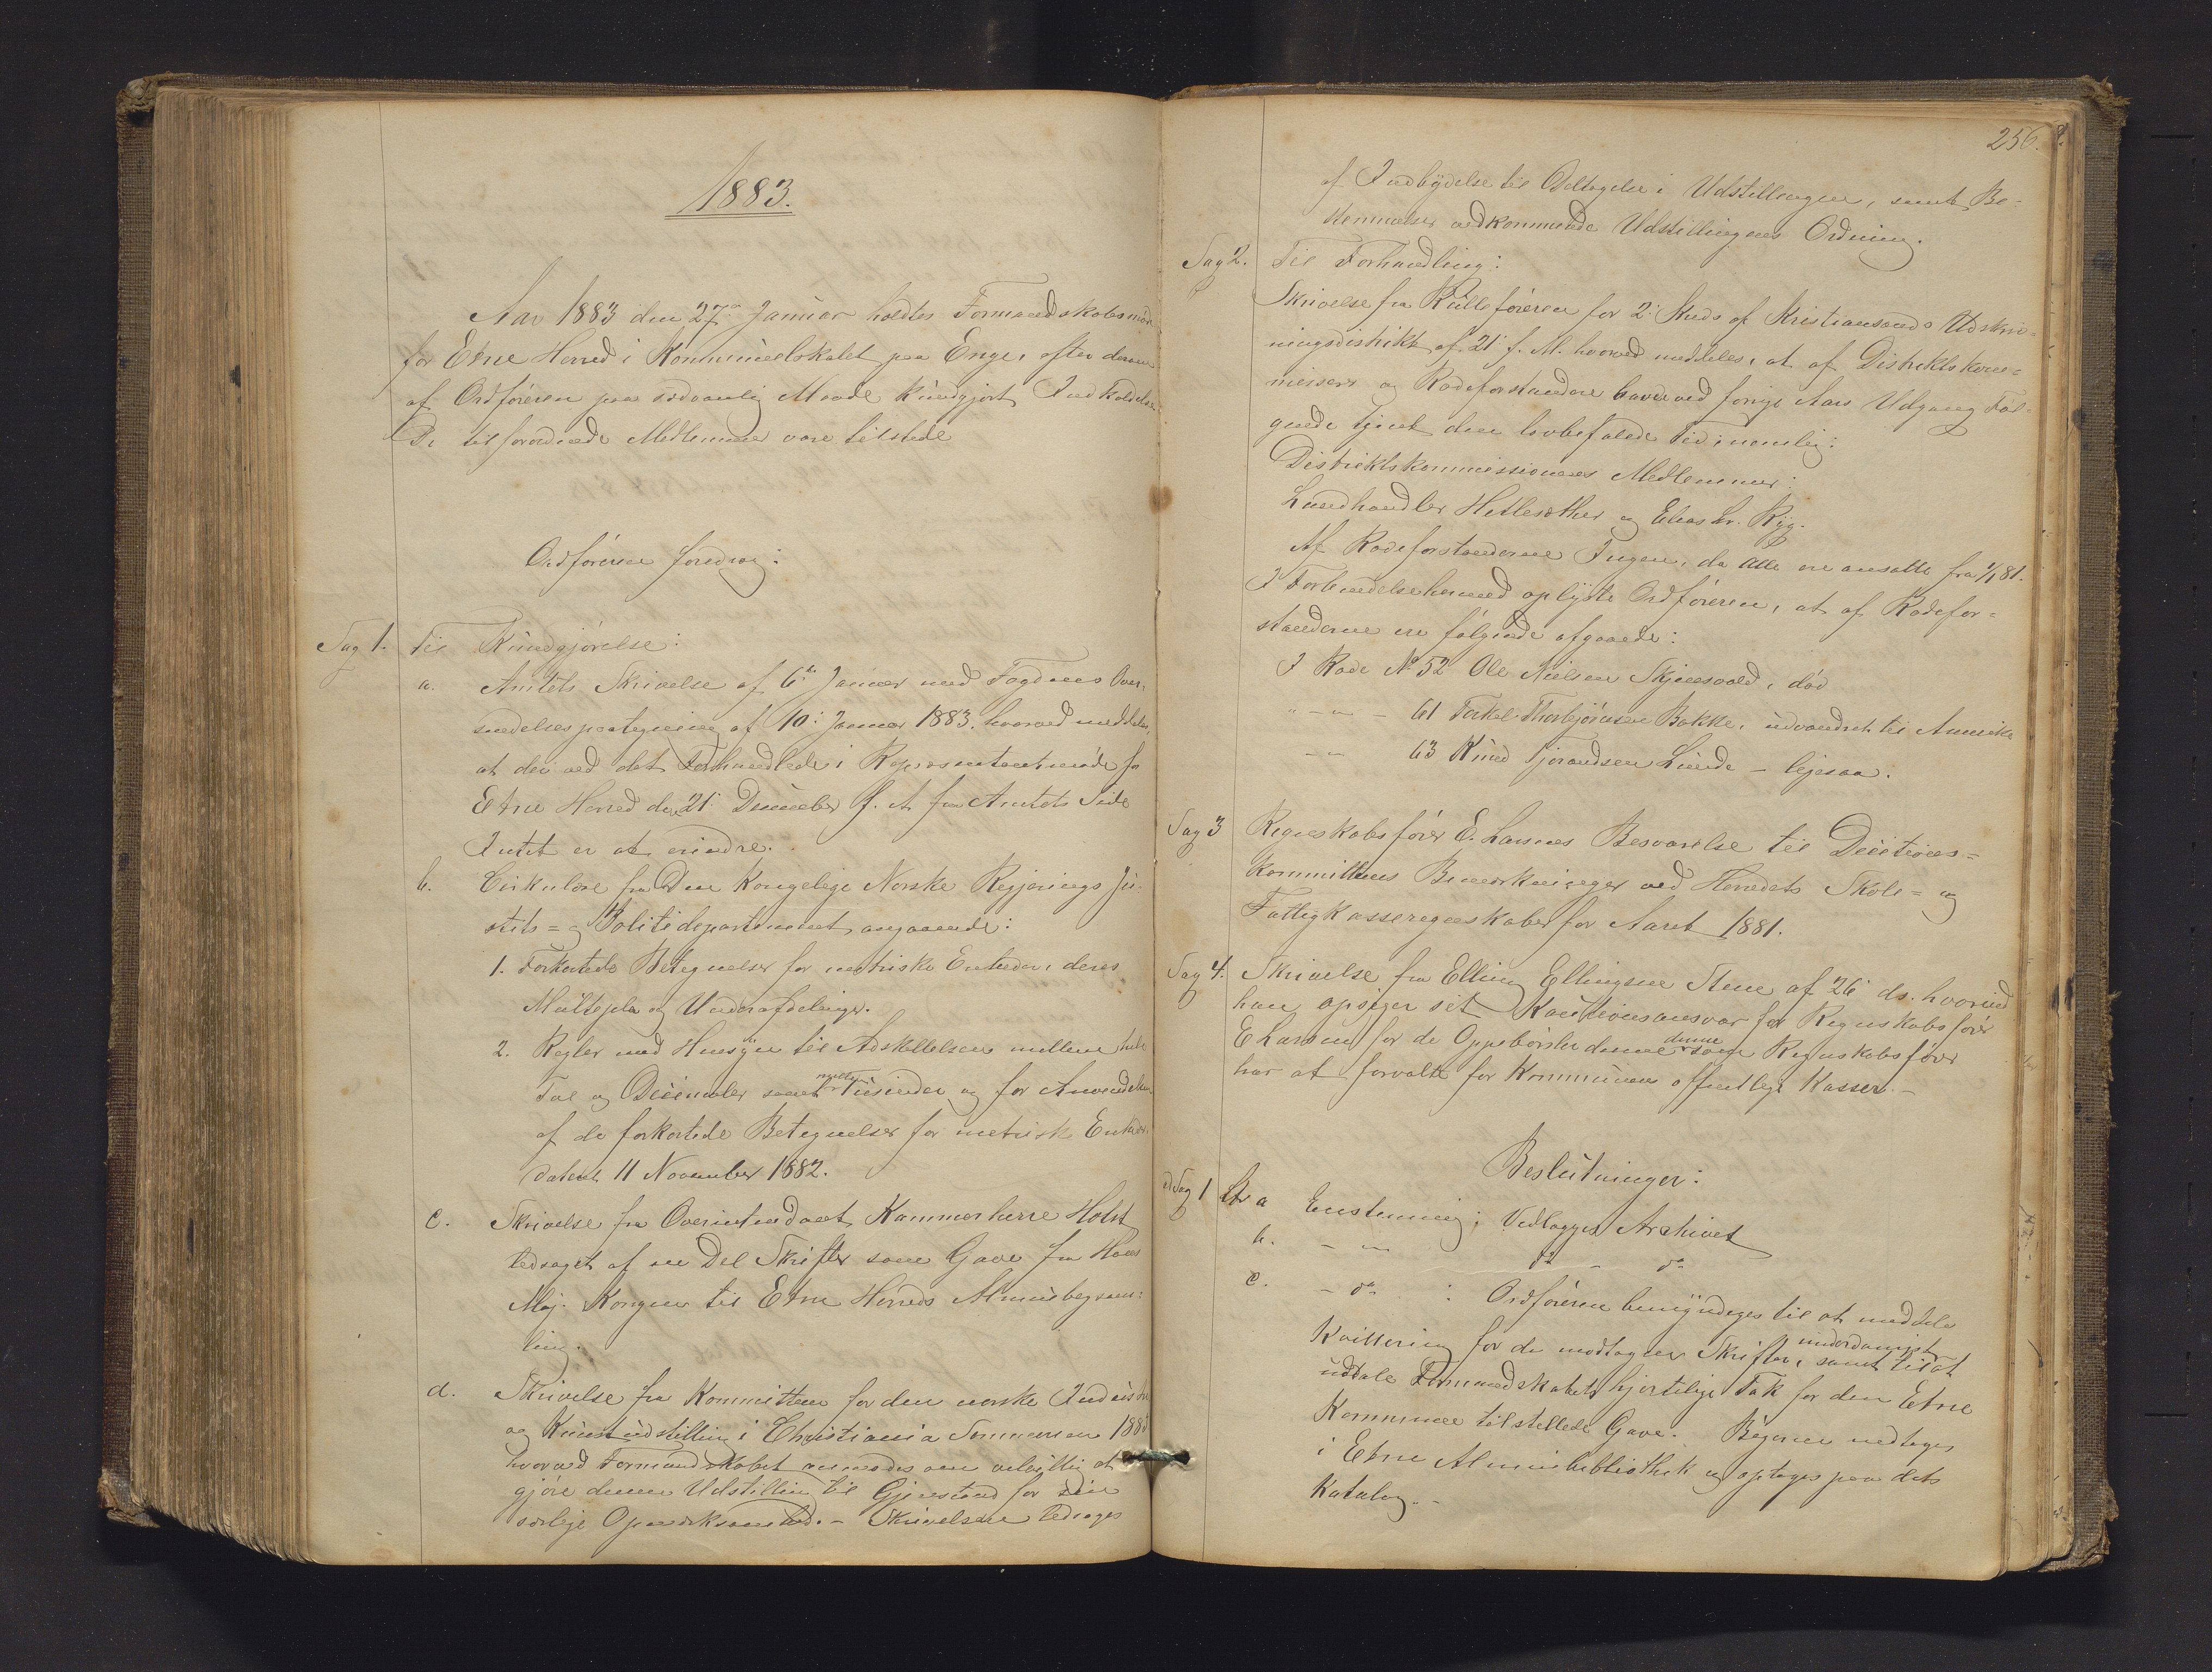 1883.
Aar 1883 den 27de Januar holdtes Formandskabsmøde
for Etne Herred i Kommunelokalet paa Enge, efter derom
af Ordføreren paa sædvanlig Maade kundgjort Indkaldelse.
De tilforordnede Medlemmer vare tilstede
Ordføreren foredrog:
Sag 1. Til Kundgjørelse:
a. Amtets Skrivelse af 6te Januar med Fogdens Over-
sendelsespaategning af 10: Januar 1883, hvorved meddeles,
at der ved det Forhandlede i Repræsentantmøde for
Etne Herred den 21: December f. A. fra Amtets Side
Intet er at erindre.
b. Cirkulære fra Den Kongelige Norske Regjerings Ju-
stits= og Politidepartement, angaaende:
1. Forkortede Betegnelser for metriske Enheder, deres
Multipla og Underafdelinger.
2. Regler med Hensyn til Adskillelsen mellem hele
Tal og Decimaler samt mellem Tusinder og for Anvendelsen
af de forkortede Betegnelser for metriske Enheder.
dateret 11 November 1882.
c. Skrivelse fra Overintendant, Kammerherre Holst
ledsaget af en Del Skrifter som Gave fra Hans
Maj. Kongen til Etne Herreds Almuebogsam-
ling.
d. Skrivelse fra Kommitteen for den norske Industri
og Kunstudstilling i Christiania Sommeren 1883
hvorved Formandskabet anmodes om velvillig at
gjøre denne Udstilling til Gjenstand for sin
særlige Opmærksomhed. - Skrivelsen ledsages
256.
af Indbydelse til Deltagelse i Udstillingen, samt Be-
stemmelser vedkommende Udstillingens Ordning.
Sag 2. Til Forhandling:
Skrivelse fra Rulleføreren for 2: Kreds af Kristiansands Udskriv-
ningsdistrikt af 21: f. M. hvorved meddeles, at af Distriktskom-
missærer og Rodeforstandere have ved forrige Aars Udgang Føl-
gende tjent den lovbefalede Tid, nemlig:
Distriktskommissionens Medlemmer:
Landhandler Hetlesæther og Elias Fr. Ryg.
Af Rodeforstanderne Ingen, da Alle ere ansatte fra 1/1 81.
I Forbindelse hermed oplyste Ordføreren, at af Rodefor-
standerne ere følgende afgaaede:
I Rode No 52 Ole Nielsen Skjensvold, død
" - " - 61 Torkel Thorbjørnsen Bakke, udvandret til Amerika
- " - 63 Knud Tjerandsen Lunde - ligesaa.
Sag 3 Regnskabsfører E. Larsens Besvarelse til Decisions=
Kommitteens Bemærkninger ved Herredets Skole= og
Fattigkasseregnskaber for Aaret 1881.
Sag 4. Skrivelse fra Elling Ellingsen Stene af 26 ds. hvorved
han opsiger sit Kautionsansvar for Regnskabsfører
E Larsen for de Oppebørsler denne som Regnskabsfører
har at forvalte for Kommunens offentlige Kasser. -
Beslutninger:
ad Sag 1 Litr a Enstemmig; Vedlægges Archivet
b. - " - do - do
c. - do : Ordføreren bemyndiges til at meddele
Kvittering for de modtagne Skrifter, samt til at underdanigst
udtale Formandskabets hjertelige Tak for den Etne
Kommune tilstillede Gave. Bøgerne nedlægges
i Etne Almuebibliothek og optages paa dets
Katalog. -